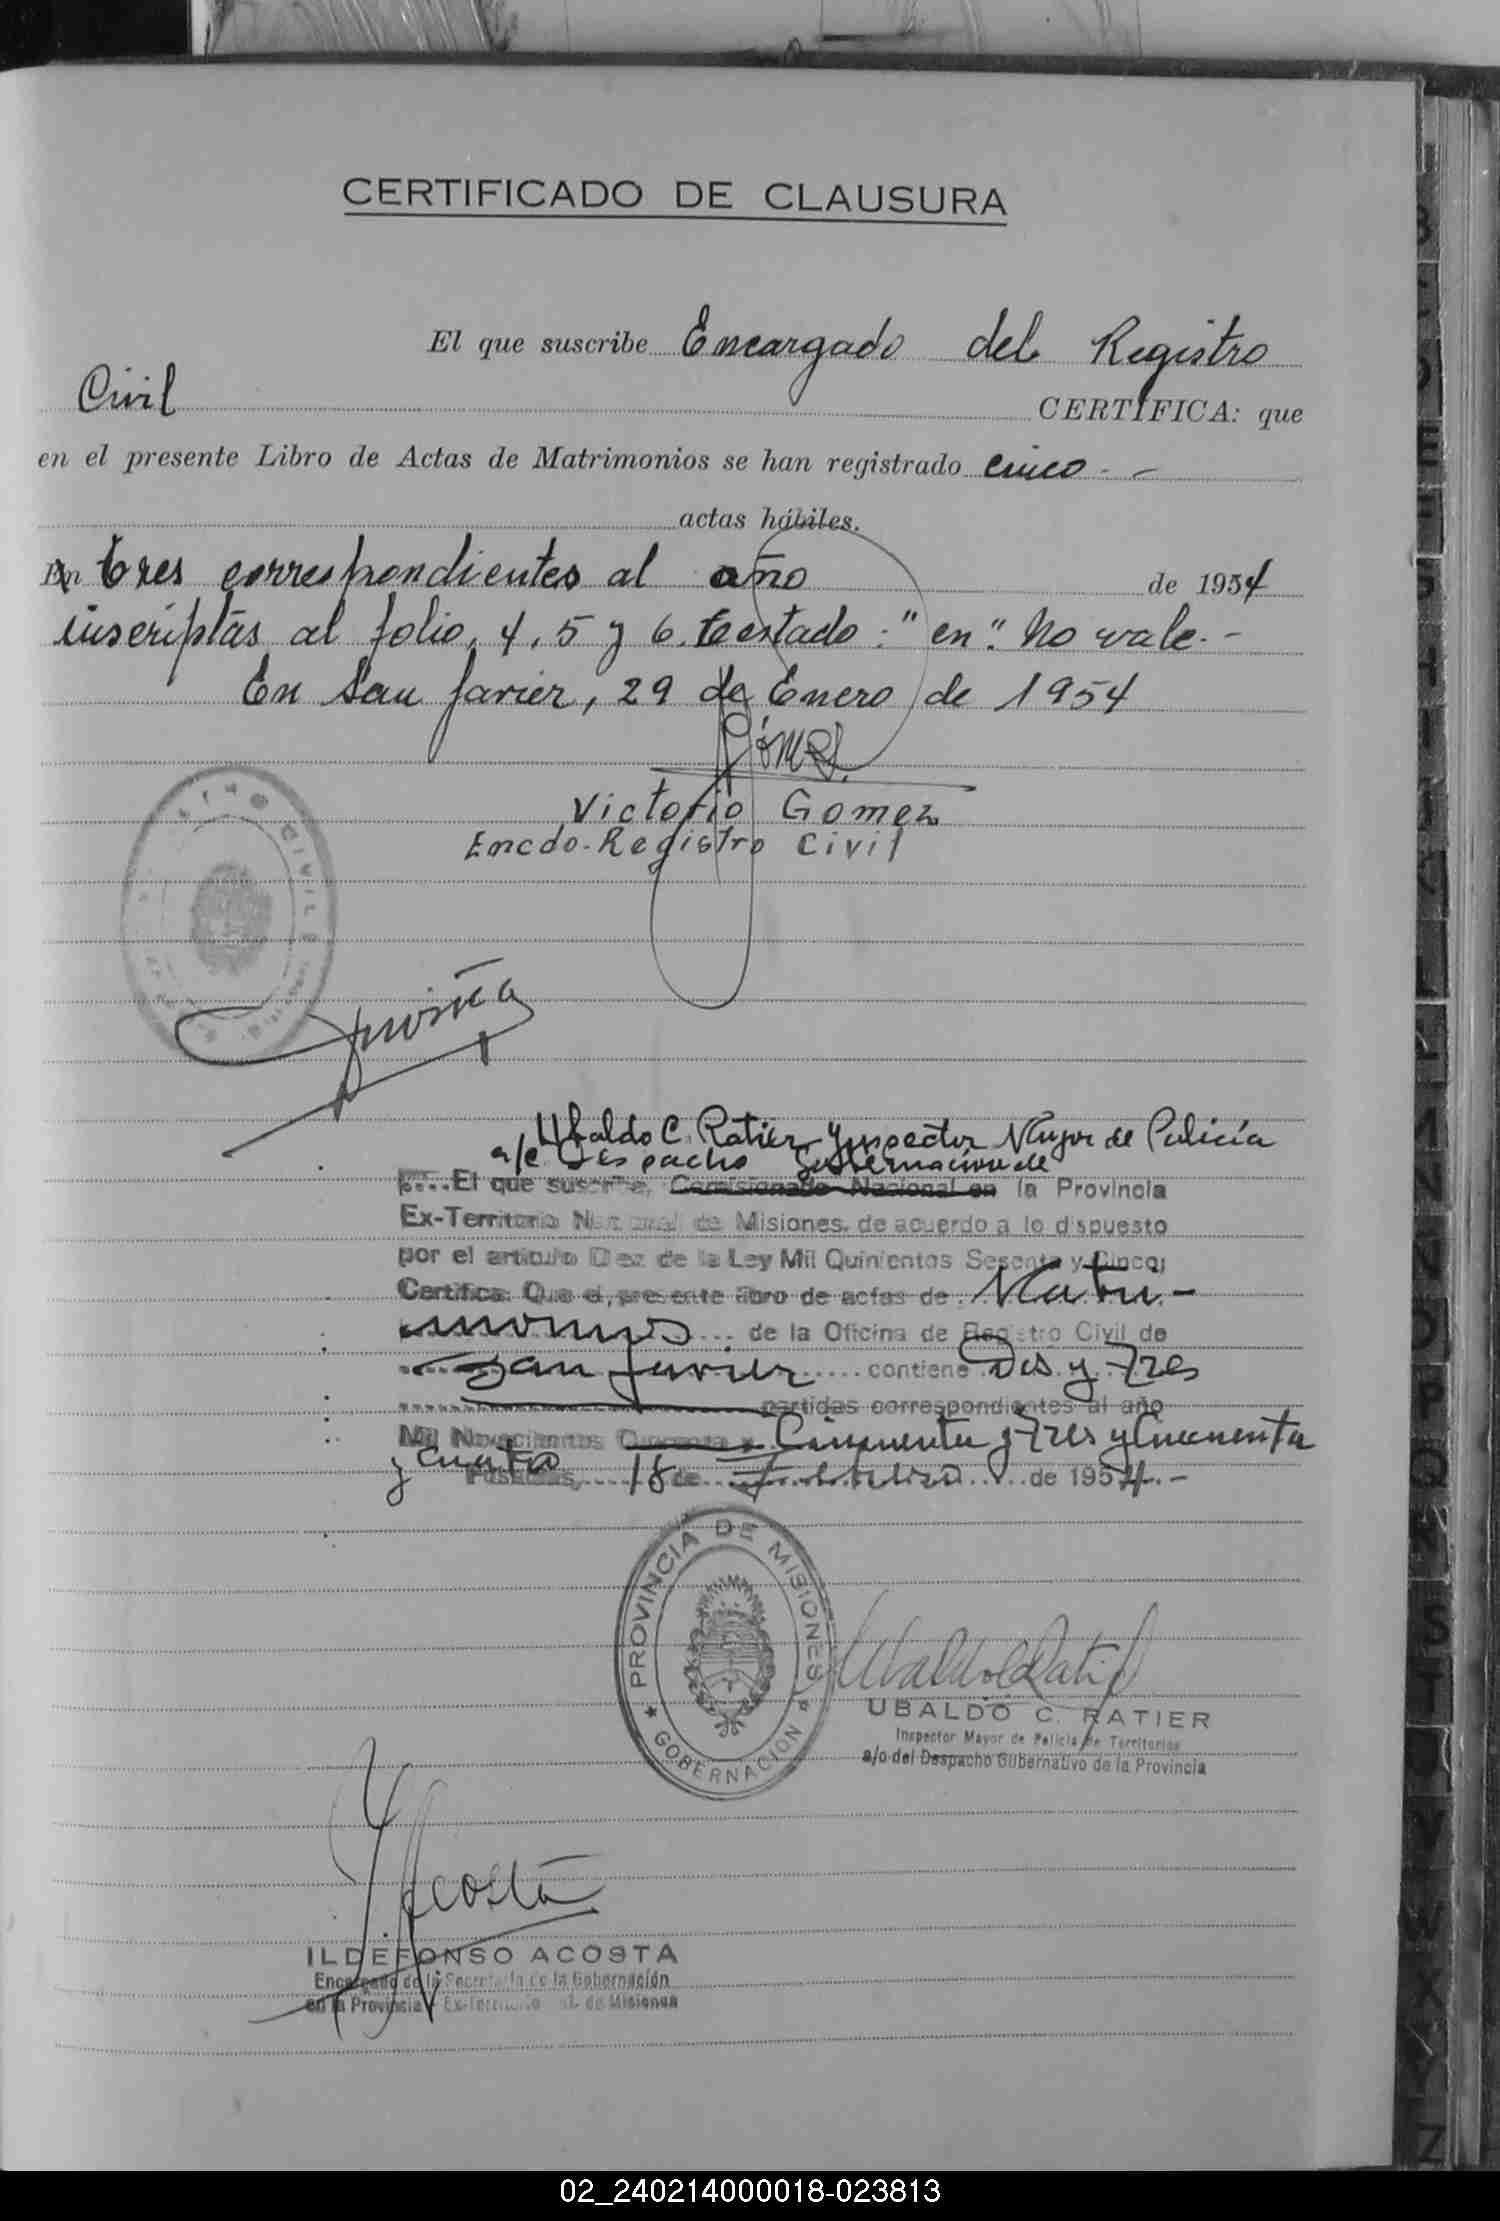 CERTIFICADO DE CLAUSURA
El que suscribe Encargado del Registro
Civil CERTIFICA: que
en el presente Libro de Actas de Matrimonios se han registrado cinco. -
actas hábiles.
En tres correspondientes al año de 1954
inscriptas al folio, 4, 5 y 6. testado: "en". No vale. -
En San Javier, 29 de Enero de 1954
Gómez
Victorio Gomez
Encdo. Registro Civil
Ubaldo C. Ratier Inspector Mayor de Policía
a/c Despacho Gubernacion de
El que suscribe, Comisionado Nacional en la Provincia
Ex-Territorio Nacional de Misiones, de acuerdo a lo dispuesto
por el artículo Diez de la Ley Mil Quinientos Sesenta y Cinco;
Certifica: Que el presente libro de actas de Matri-
monios de la Oficina de Registro Civil de
San Javier contiene Dos y Tres
partidas correspondientes al año
Mil Novecientos Cincuenta y Cincuenta y Tres y Cincuenta
y Cuatro
Posadas, 18 de Febrero de 1954.-
PROVINCIA DE MISIONES
GOBERNACION
UBALDO C. RATIER
Inspector Mayor de Policía de Territorios
a/c del Despacho Gubernativo de la Provincia
Acosta
ILDEFONSO ACOSTA
Encargado de la Secretaría de la Gobernación
en la Provincia Ex-Territorio de Misiones
02_240214000018-023813